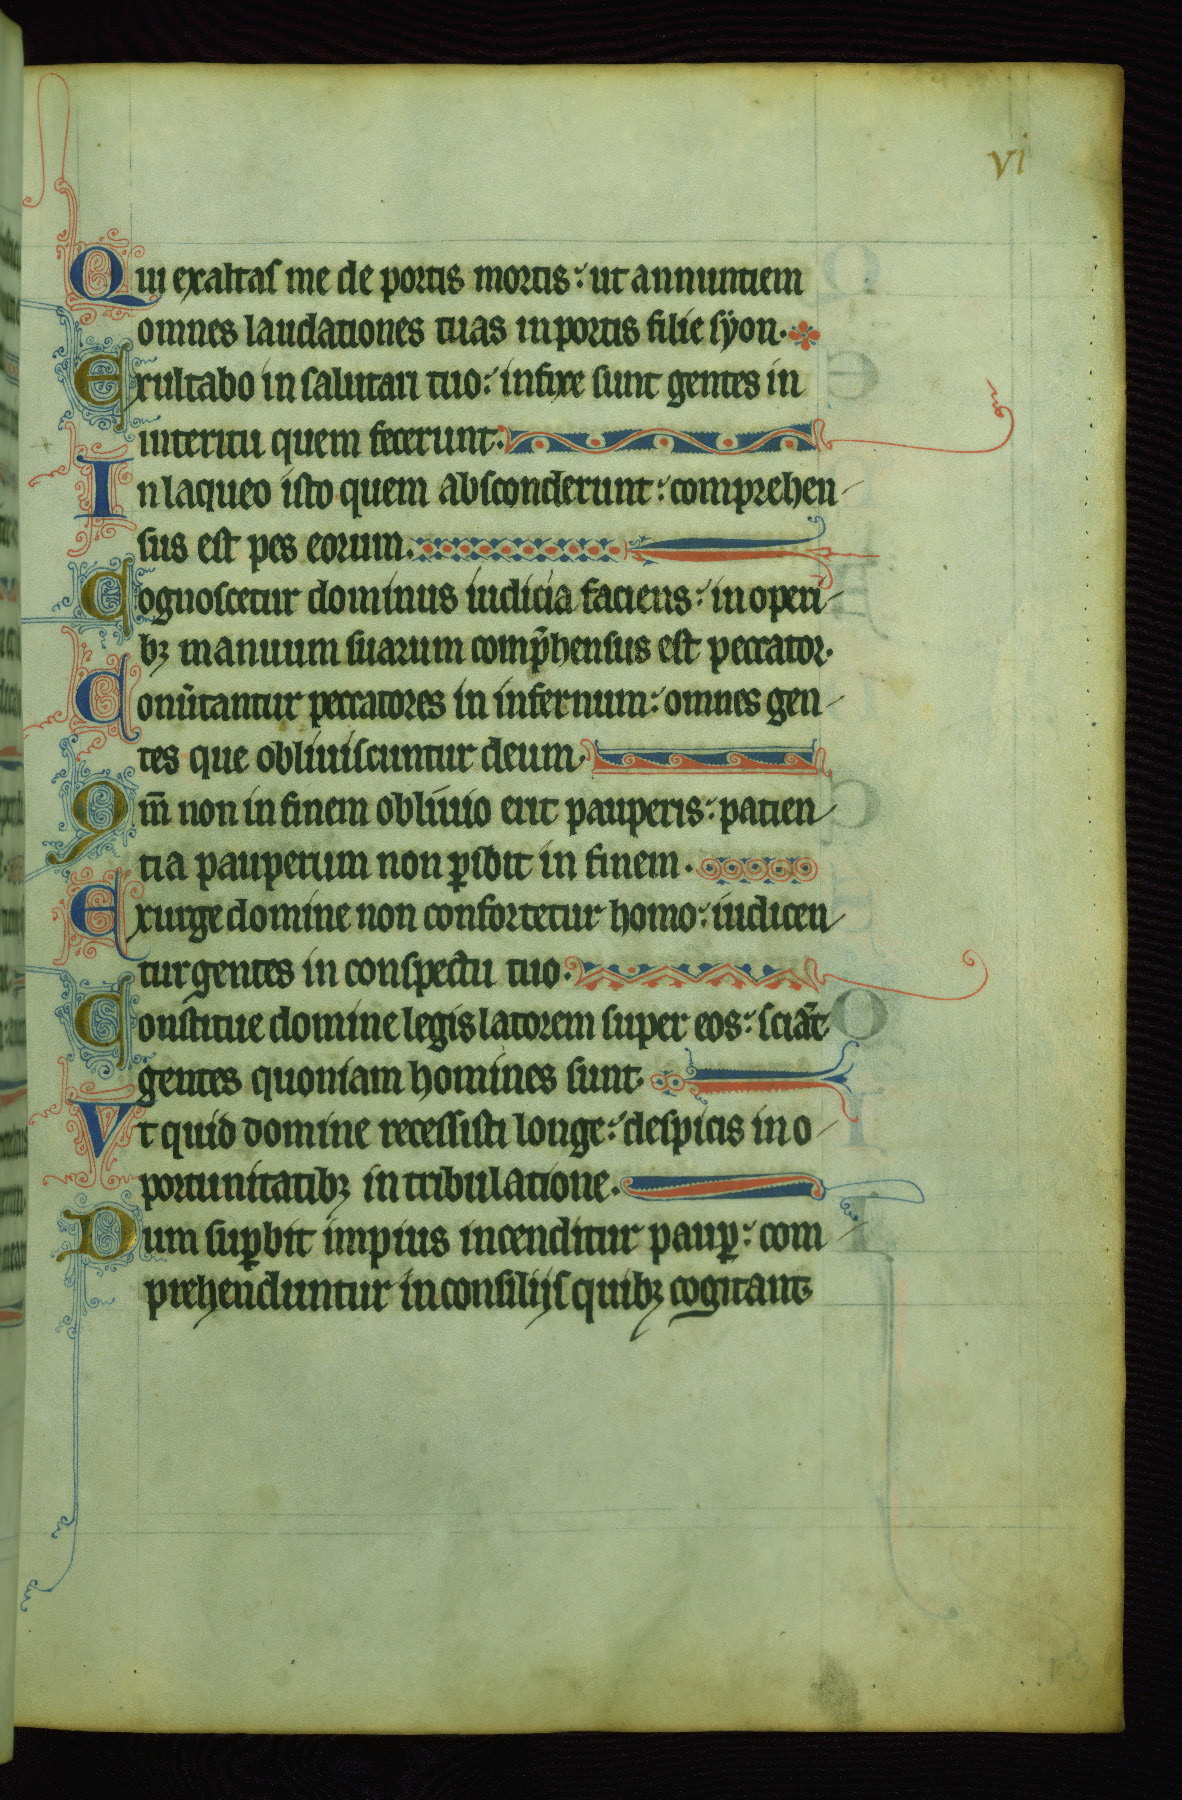 vi
Qui exaltas me de portis mortis: ut annuntiem
omnes laudationes tuas in portis filie syon.
Exultabo in salutari tuo: infixe sunt gentes in
interitu quem fecerunt.
In laqueo isto quem absconderunt: comprehen
sus est pes eorum.
Cognoscetur dominus iudicia faciens: in operi
bꝫ manuum suarum comp̃hensus est peccator.
Conũtantur peccatores in infernum: omnes gen
tes que obliuiscuntur deum.
Qm̃ non in finem obliuio erit pauperis: patien
tia pauperum non ꝑibit in finem.
Exurge domine non confortetur homo: iudicen
tur gentes in conspectu tuo.
Constitue domine legislatorem super eos: sciãt
gentes quoniam homines sunt.
Vt quid domine recessisti longe: despicis in o
portunitatibꝫ in tribulatione.
Dum suꝑbit impius incenditur pauꝑ: com
prehenduntur in consilijs quibꝫ cogitant